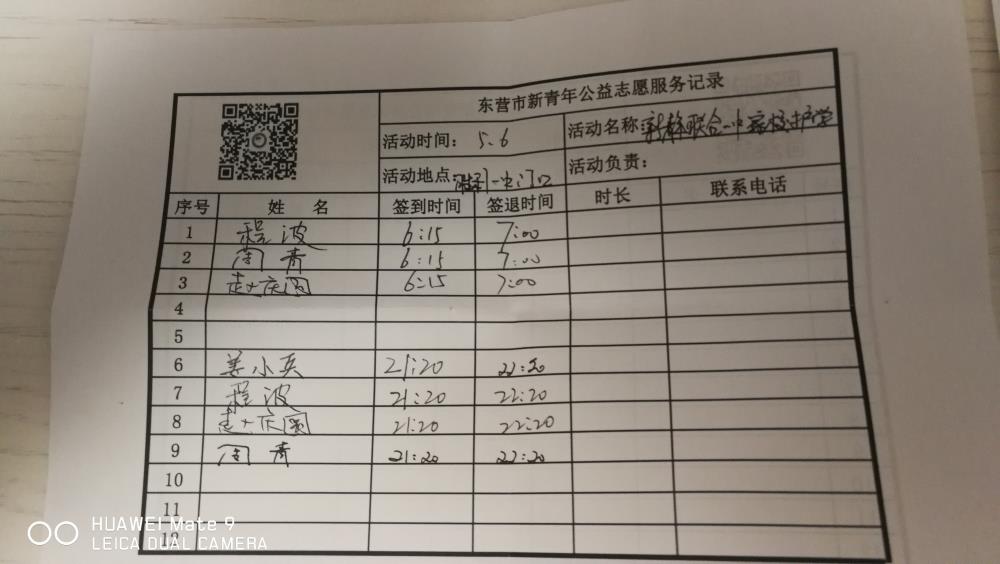 东营市新青年公益志愿服务记录
活动时间: 5.6 活动名称: 联合一中家校护学
活动地点: 一中门口 活动负责:
序号 姓 名 签到时间 签退时间 时长 联系电话
1 程波 6:15 7:00
2 周青 6:15 7:00
3 赵庆圆 6:15 7:00
4
5
6 姜小兵 21:20 22:20
7 程波 21:20 22:20
8 赵庆圆 21:20 22:20
9 周青 21:20 22:20
10
11
12
HUAWEI Mate 9
LEICA DUAL CAMERA